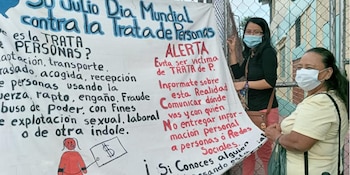 30 Julio Día Mundial
contra la Trata de Personas
es la TRATA
PERSONAS?
captación, transporte,
traslado, acogida, recepción
de personas usando la
fuerza, rapto, engaño, fraude
abuso de Poder, con fines
de explotación sexual, laboral
o de otra índole.
ALERTA
Evita ser víctima
de TRATA de P.
Infórmate sobre
esta Realidad
Comunicar dónde
vas y con quién
No entregar infor-
mación personal
a personas o Redes
Sociales.
¡Si Conoces alguien